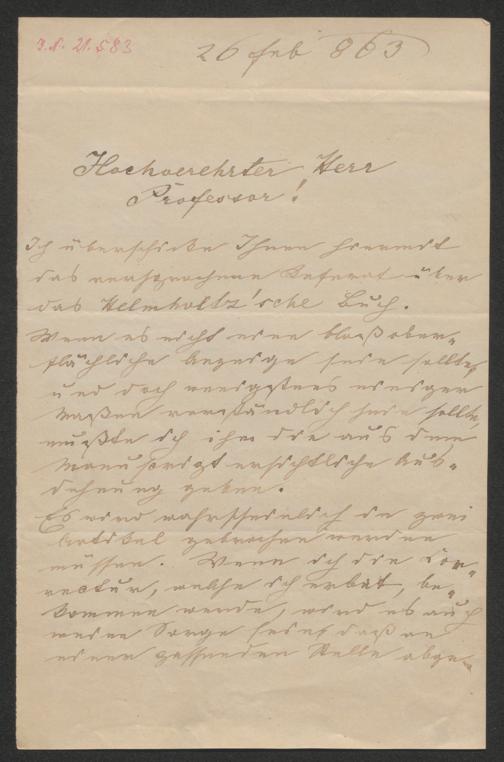 I.N. 21.583
26 feb 863
Hochverehrter Herr
Professor!
Ich überschicke Ihnen hiermit
das versprochene Referat über
das Helmholtz'sche Buch.
Wenn es nicht eine bloß ober-
flächliche Anzeige sein sollte,
und doch wenigstens einiger
Maßen verständlich sein sollte,
mußte ich ihm die aus dem
Manuskript ersichtliche Aus-
dehnung geben.
Es wird wahrscheinlich in zwei
Artikel gebrochen werden
müssen. Wenn ich die Cor-
rectur, welche ich erbat, be-
kommen werde, wird es auch
meine Sorge sein, daß an
einer passenden Stelle abge-